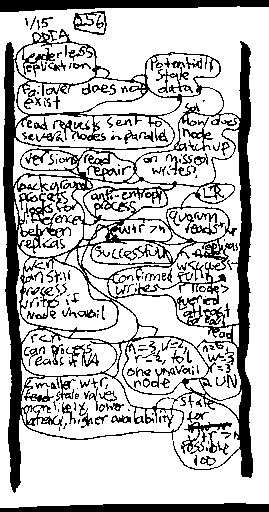 1/15 256
DDIA
leaderless
replication
Potentially
stale
data
failover does not
exist
so
read requests sent to
several nodes in parallel
How does
node
catch up
versions
read
repair
on missed
writes?
background
process
looks for
differences
between
replicas
anti-entropy
process
LR
w+r>n
quorum
reads
successful
confirmed
writes
w<n
can still
process
writes if
node unavail
r<n
can process
reads if NA
n=3, w=2,
r=2, tol
one unavail
node
n=5
w=3
r=3
2 UN
smaller w+r,
read stale values
more likely, lower
latency, higher availability
stale
for
w+r>n
possible
too